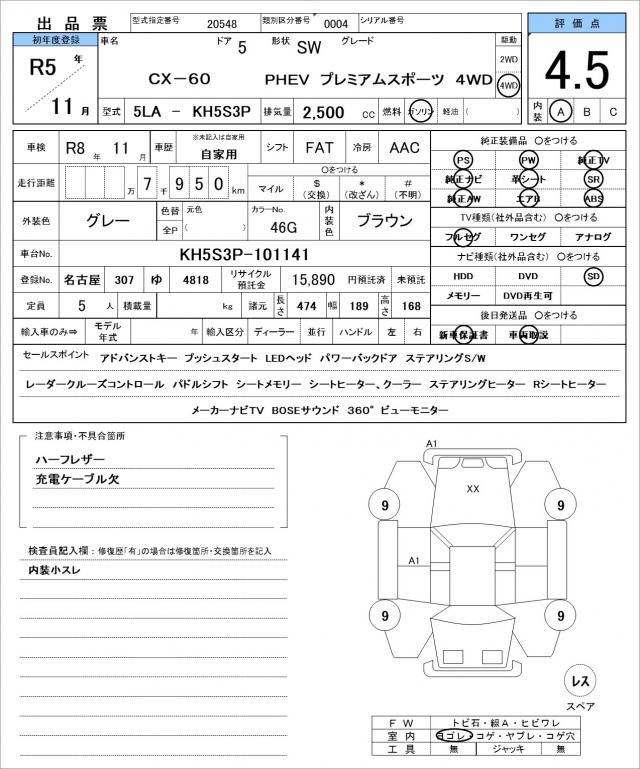 出品票 型式指定番号 20548 類別区分番号 0004 シリアル番号
評価点
4.5
内装 A B C
初年度登録
R5 年
11 月
車名 ドア 5 形状 SW グレード
CX-60 PHEV プレミアムスポーツ 4WD
駆動
2WD
4WD
型式 5LA - KH5S3P 排気量 2,500 cc 燃料 ガソリン 軽油 ( )
車検 R8 年 11 月 車歴 ※未記入は自家用 自家用 シフト FAT 冷房 AAC
走行距離 万 7 千 9 5 0 km ○をつける マイル $ (交換) * (改ざん) # (不明)
外装色 グレー 色替 元色 全P ( ) カラーNo. 46G 内装色 ブラウン
車台No. KH5S3P-101141
登録No. 名古屋 307 ゆ 4818 リサイクル預託金 15,890 円預託済 未預託
定員 5 人 積載量 kg 諸元 長さ 474 幅 189 高さ 168
輸入車のみ⇒ モデル年式 年 輸入区分 ディーラー 並行 ハンドル 左 右
純正装備品 ○をつける
PS PW 純正TV
純正ナビ 革シート SR
純正AW エアB ABS
TV種類(社外品含む) ○をつける
フルセグ ワンセグ アナログ
ナビ種類(社外品含む) ○をつける
HDD DVD SD
メモリー DVD再生可
後日発送品 ○をつける
新車保証書 車両取説
セールスポイント アドバンストキー プッシュスタート LEDヘッド パワーバックドア ステアリングS/W
レーダークルーズコントロール パドルシフト シートメモリー シートヒーター、クーラー ステアリングヒーター Rシートヒーター
メーカーナビTV BOSEサウンド 360°ビューモニター
注意事項・不具合箇所
ハーフレザー
充電ケーブル欠
検査員記入欄:修復歴「有」の場合は修復箇所・交換箇所を記入
内装小スレ
A1
XX
9 9
A1
9 9
レス
スペア
FW トビ石・線A・ヒビワレ
室内 ヨゴレ・コゲ・ヤブレ・コゲ穴
工具 無 ジャッキ 無